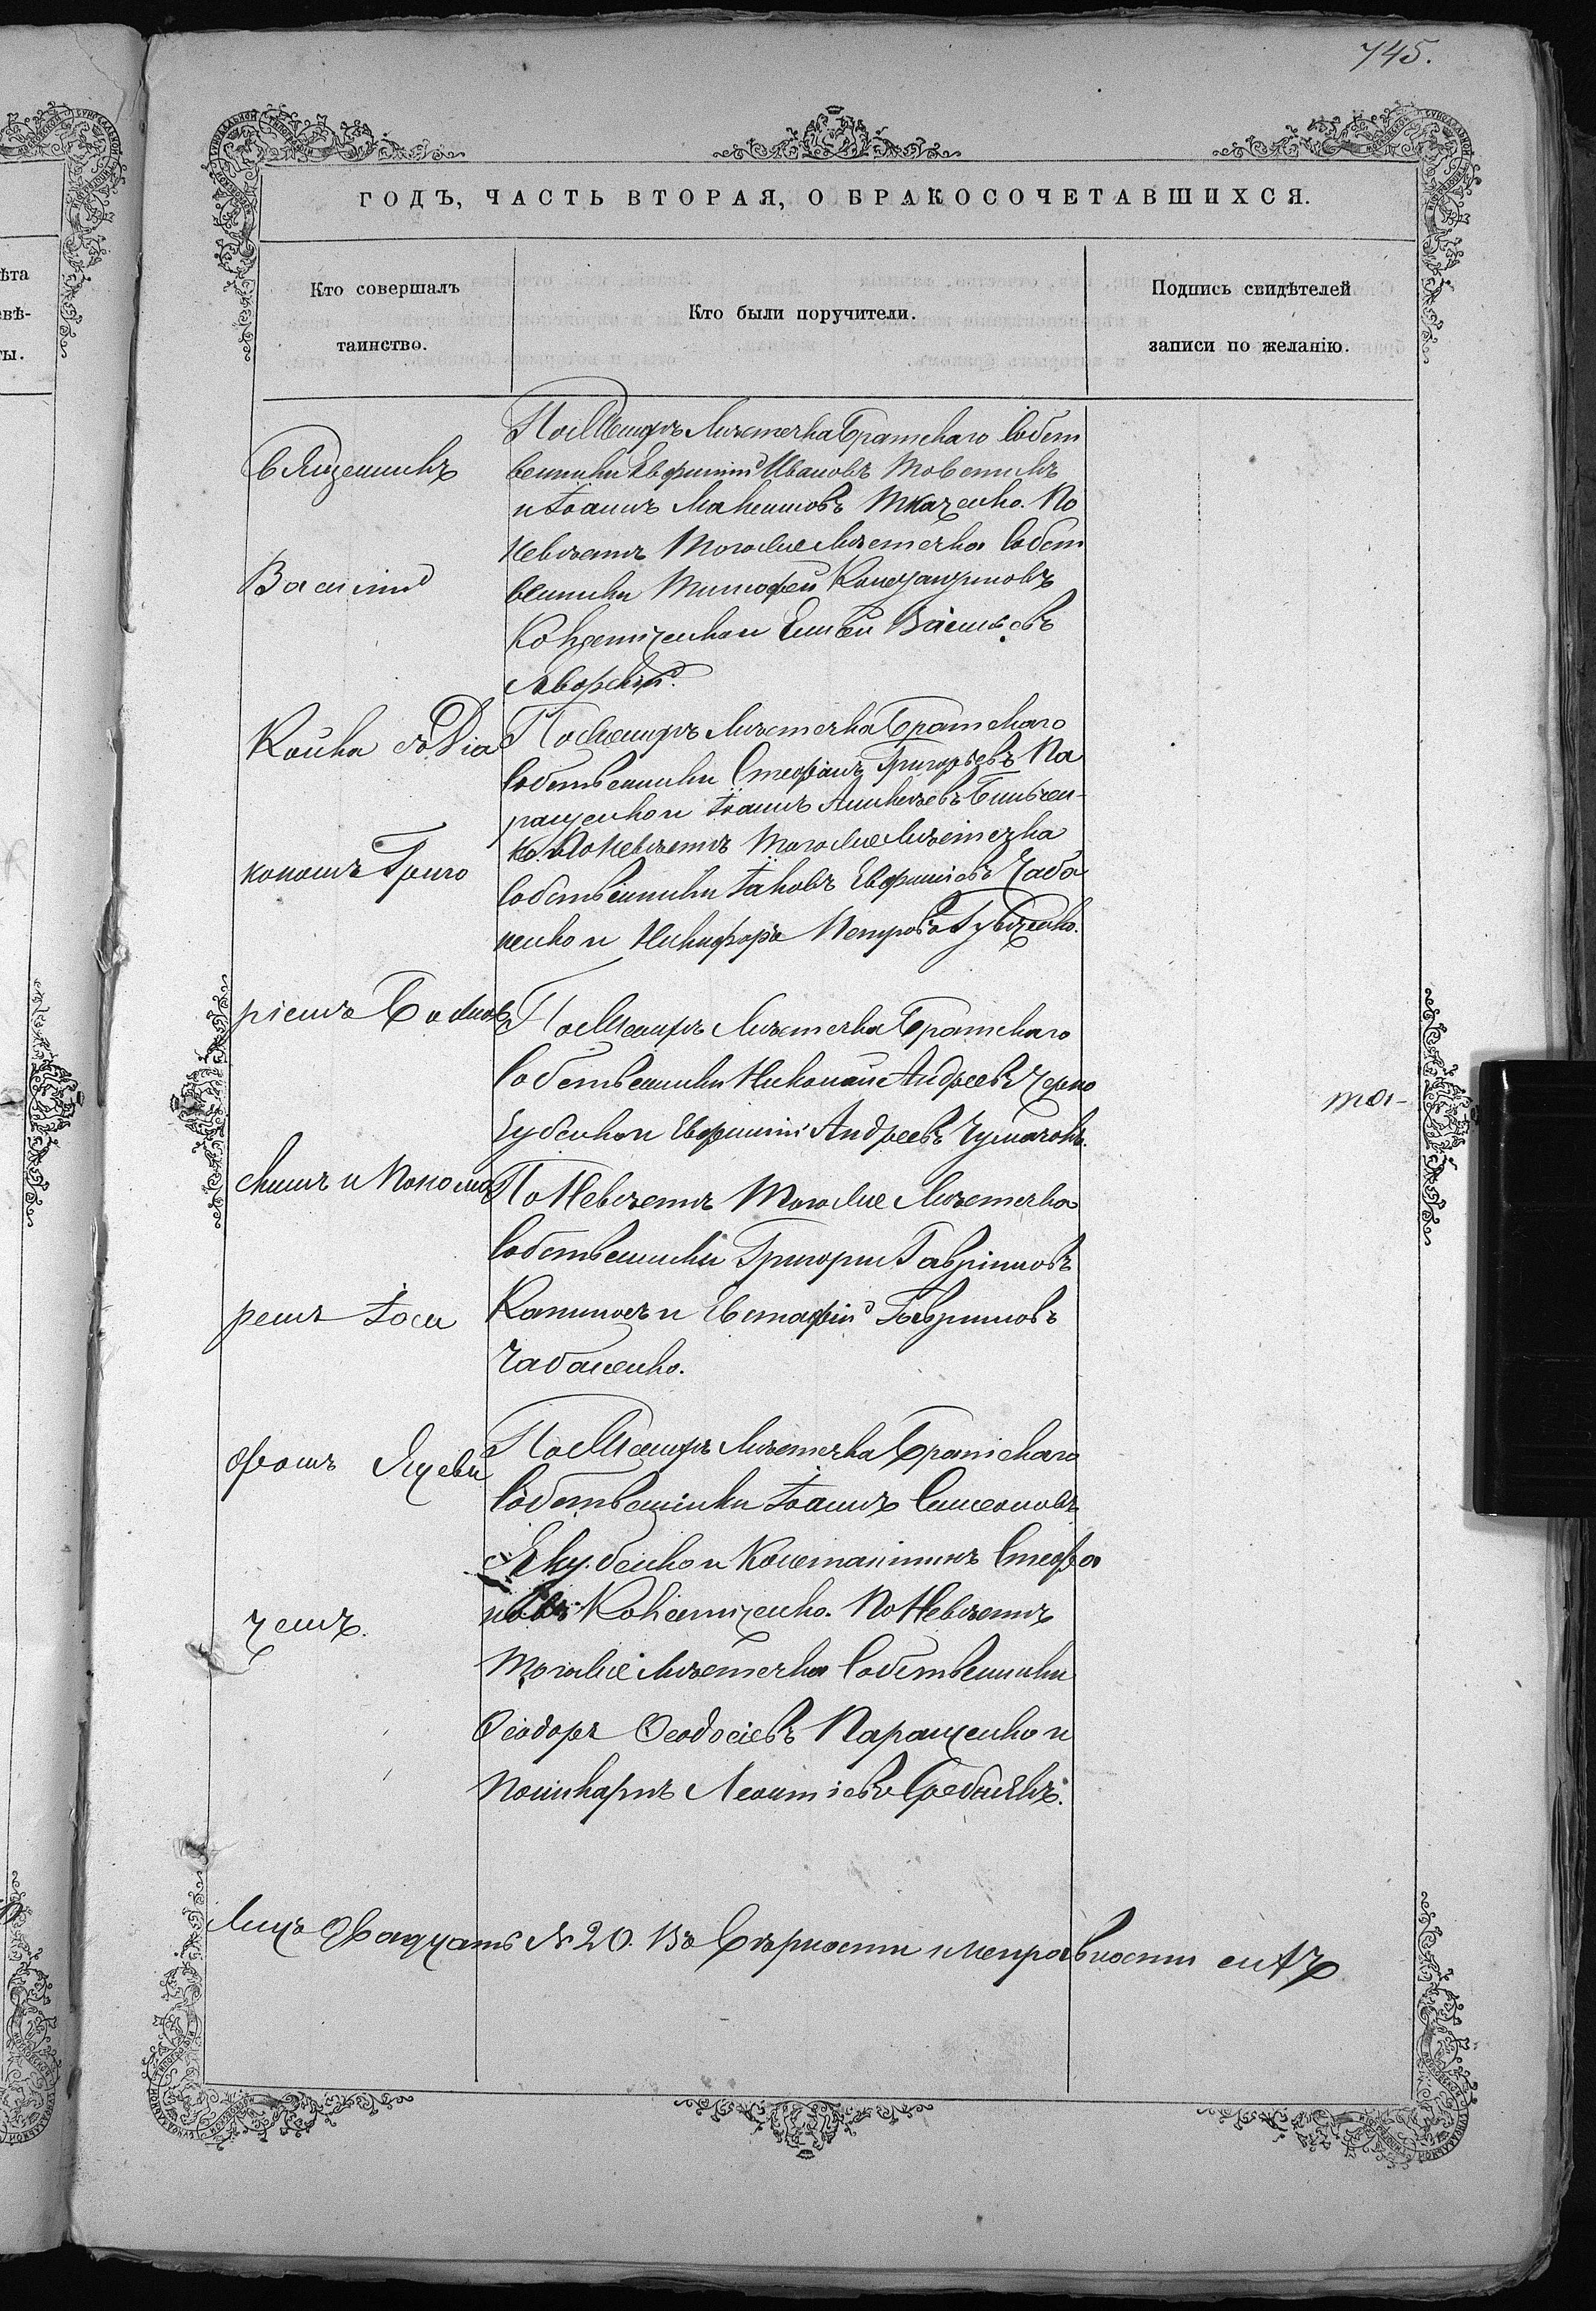 745.
ГОДЪ, ЧАСТЬ ВТОРАЯ, О БРАКОСОЧЕТАВШИХСЯ.
Кто совершалъ
таинство.
Кто были поручители.
Подпись свидѣтелей
записи по желанію.
Священникъ
Василій
Койка съ Діа
кономъ Григо
ріемъ
скимъ и Поном
ремъ Іоси
фомъ Яцеви
чемъ.
По Женихѣ Мѣстечка Братскаго Собст
венники Евфимій Ивановъ Товстикъ
и Іоаннъ Максимовъ Ткаченко. По
Невѣстѣ Тогоже Мѣстечка Собст
венники Тимофей
и Василіевъ
Яворскій.
По Женихѣ Мѣстечка Братскаго
Собственники Стефанъ Григорьевъ Па
ращенко и Іоаннъ
ко. По Невѣстѣ Тогоже Мѣстечка
Собственники Іаковъ Евфиміевъ Чаба
ненко и Никифоръ Петровъ
По Женихѣ Мѣстечка Братскаго
Собственники Николай Андреевъ Черно
губенко и Евфимій Андреевъ Чумаченко.
По Невѣстѣ Тогоже Мѣстечка
Собственники Григорій Гавріиловъ
и Евстафій Гавриловъ
Чабаненко.
По Женихѣ Мѣстечка Братскаго
Собственники Іоаннъ Симеоновъ
Якубенко и Константинъ Стефа
новъ По Невѣстѣ
Тогоже Мѣстечка Собственники
Ѳеодоръ Ѳеодосіевъ Паращенко и
Поликарпъ Леонтіевъ
та-
Лицъ Двадцать № 20. Въ вѣрности и исправности сихъ